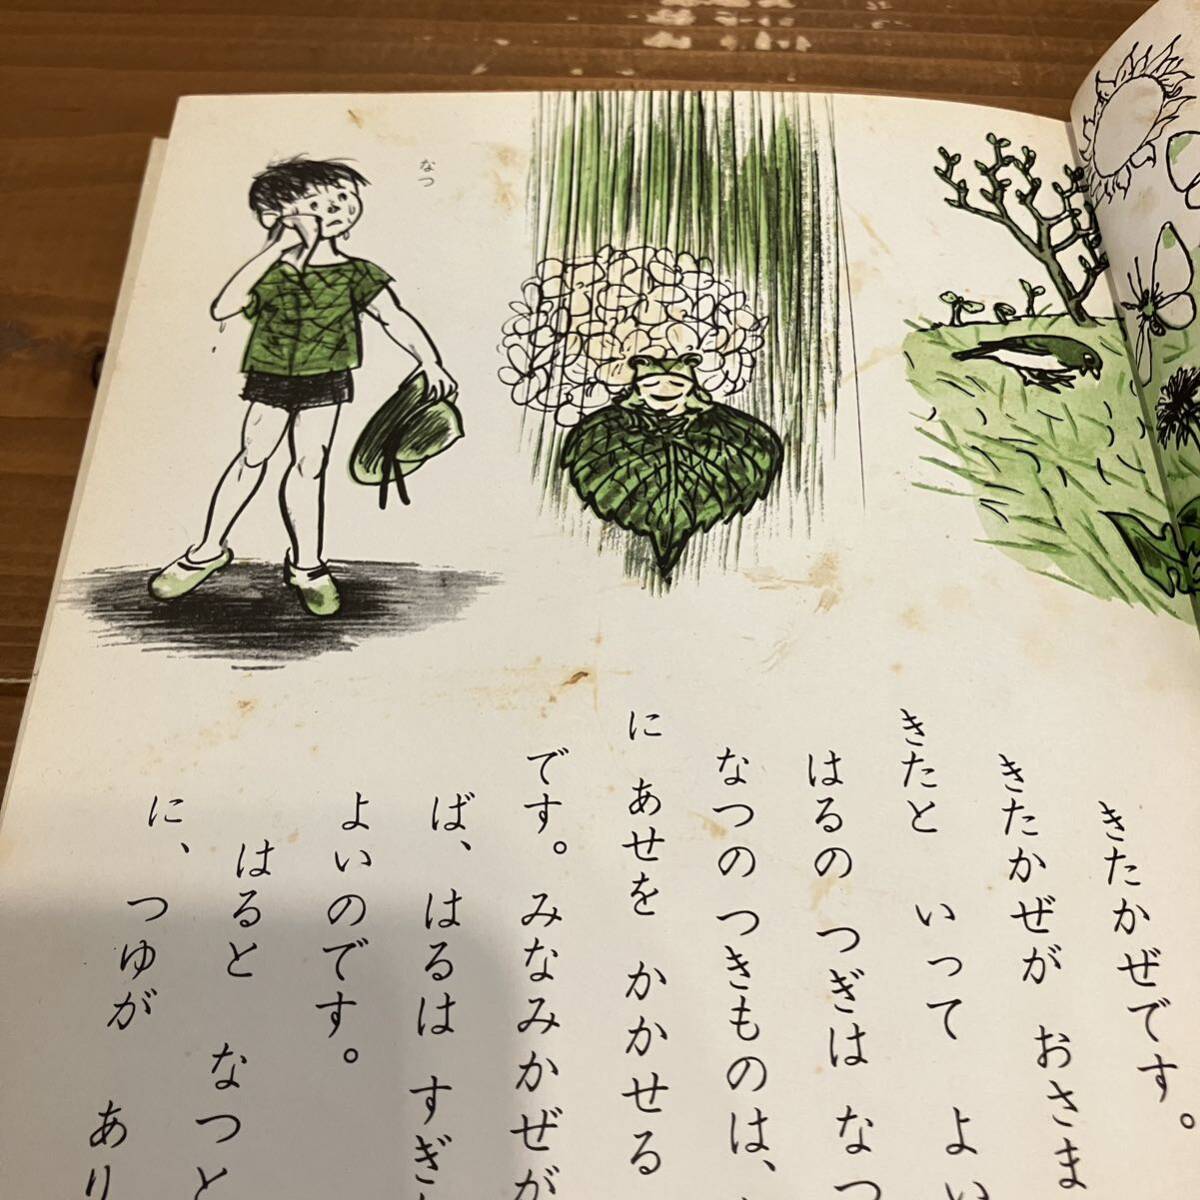 なつ
きたかぜです。
きたかぜが おさま
きたと いって よい
はるの つぎは なつ
なつのつきものは、
に あせを かかせる
です。みなみかぜが
ば、はるは すぎ
よいのです。
はると なつと
に、つゆが あり